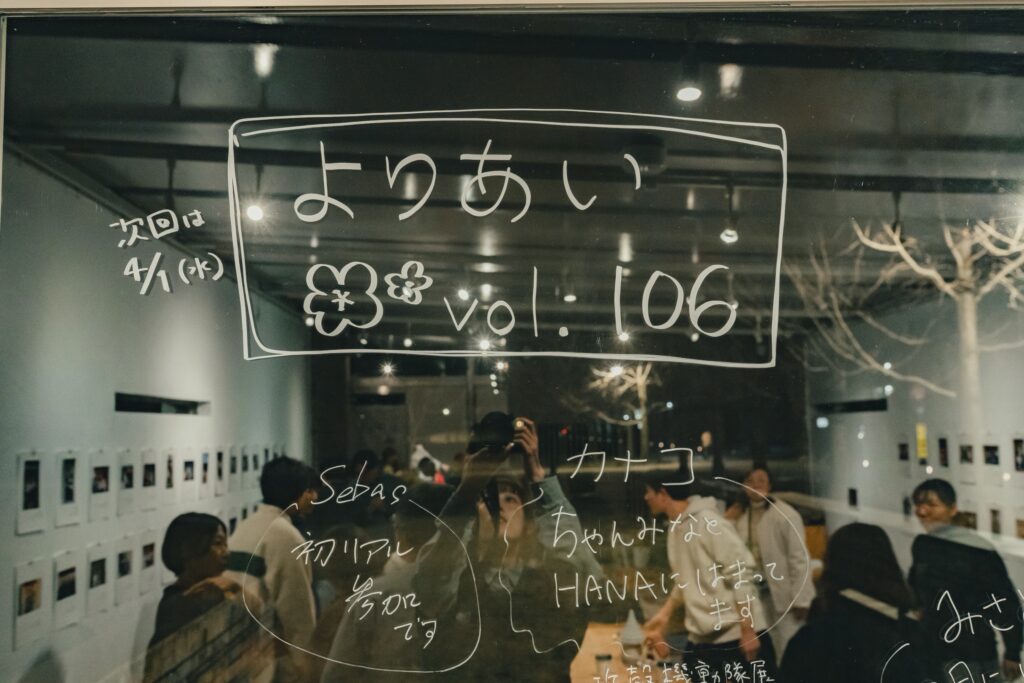 よりあい
vol. 106
次回は
4/1(水)
Sebas
初リアル
参加
です
カナコ
ちゃんみなと
HANAにはまって
ます
攻殻機動隊展
みさ